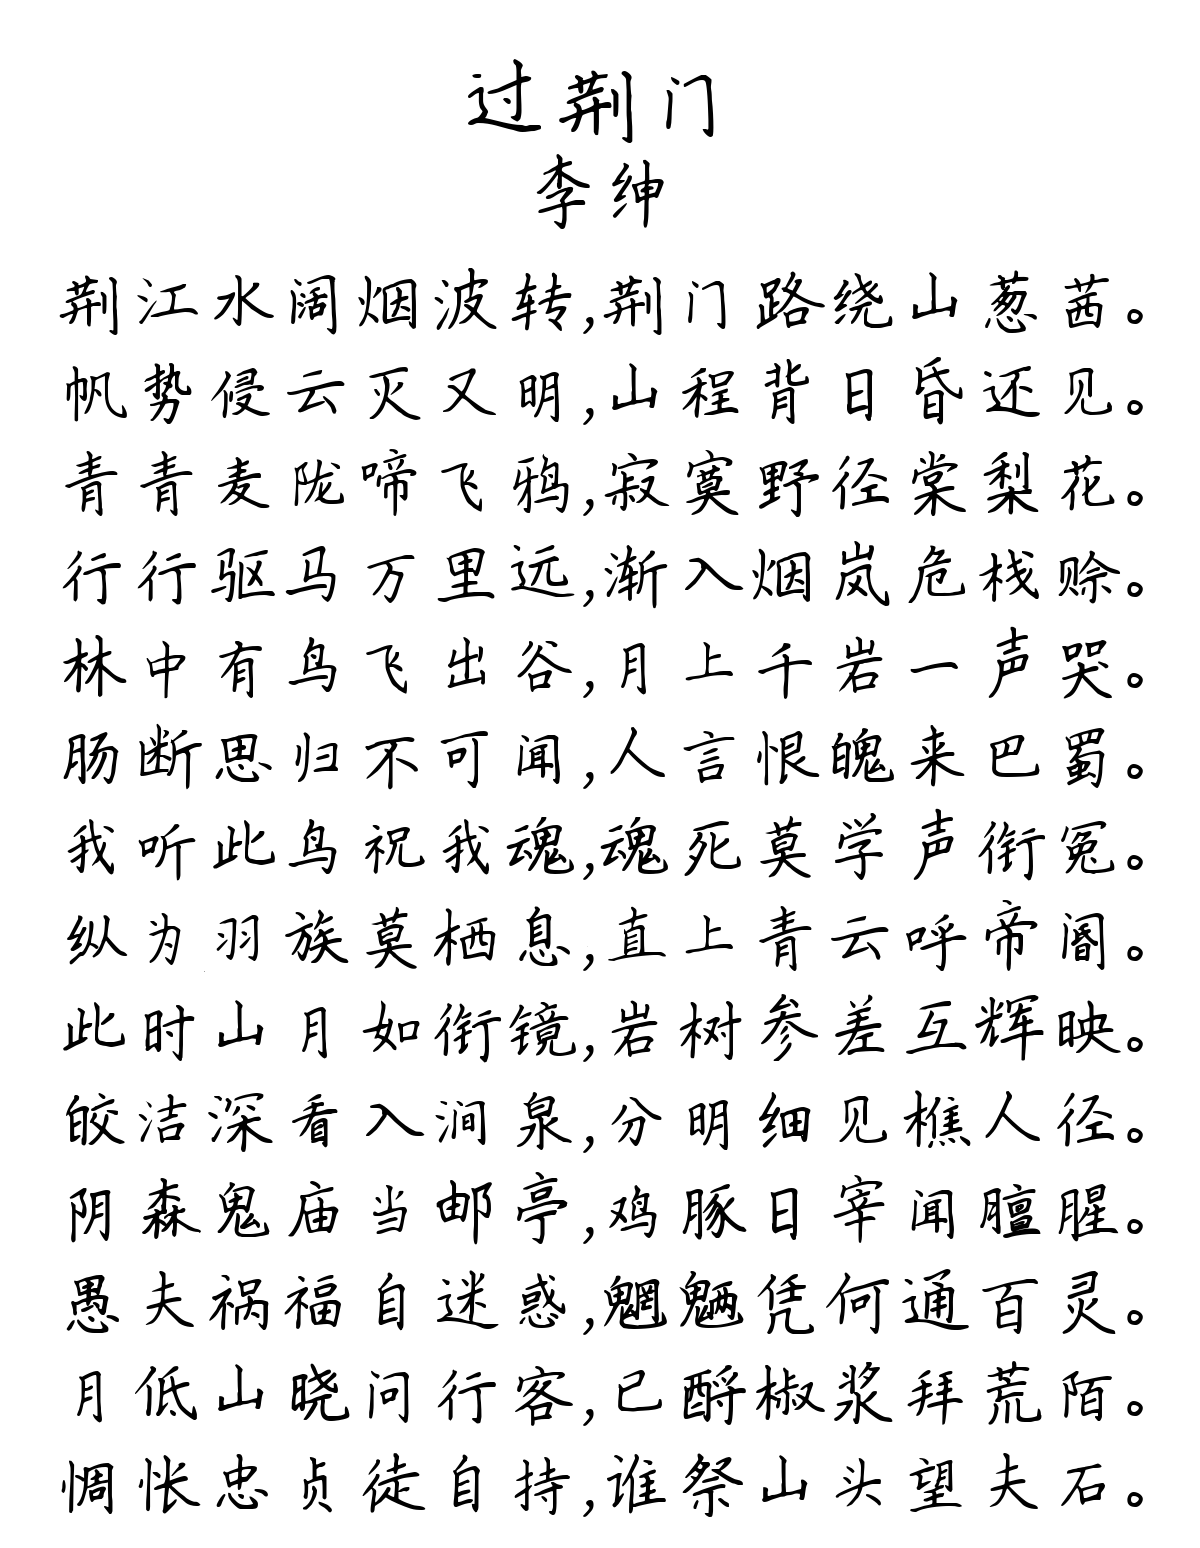 过荆门
李绅
荆江水阔烟波转,荆门路绕山葱茜。
帆势侵云灭又明,山程背日昏还见。
青青麦陇啼飞鸦,寂寞野径棠梨花。
行行驱马万里远,渐入烟岚危栈赊。
林中有鸟飞出谷,月上千岩一声哭。
肠断思归不可闻,人言恨魄来巴蜀。
我听此鸟祝我魂,魂死莫学声衔冤。
纵为羽族莫栖息,直上青云呼帝阍。
此时山月如衔镜,岩树参差互辉映。
皎洁深看入涧泉,分明细见樵人径。
阴森鬼庙当邮亭,鸡豚日宰闻膻腥。
愚夫祸福自迷惑,魍魉凭何通百灵。
月低山晓问行客,已酹椒浆拜荒陌。
惆怅忠贞徒自持,谁祭山头望夫石。